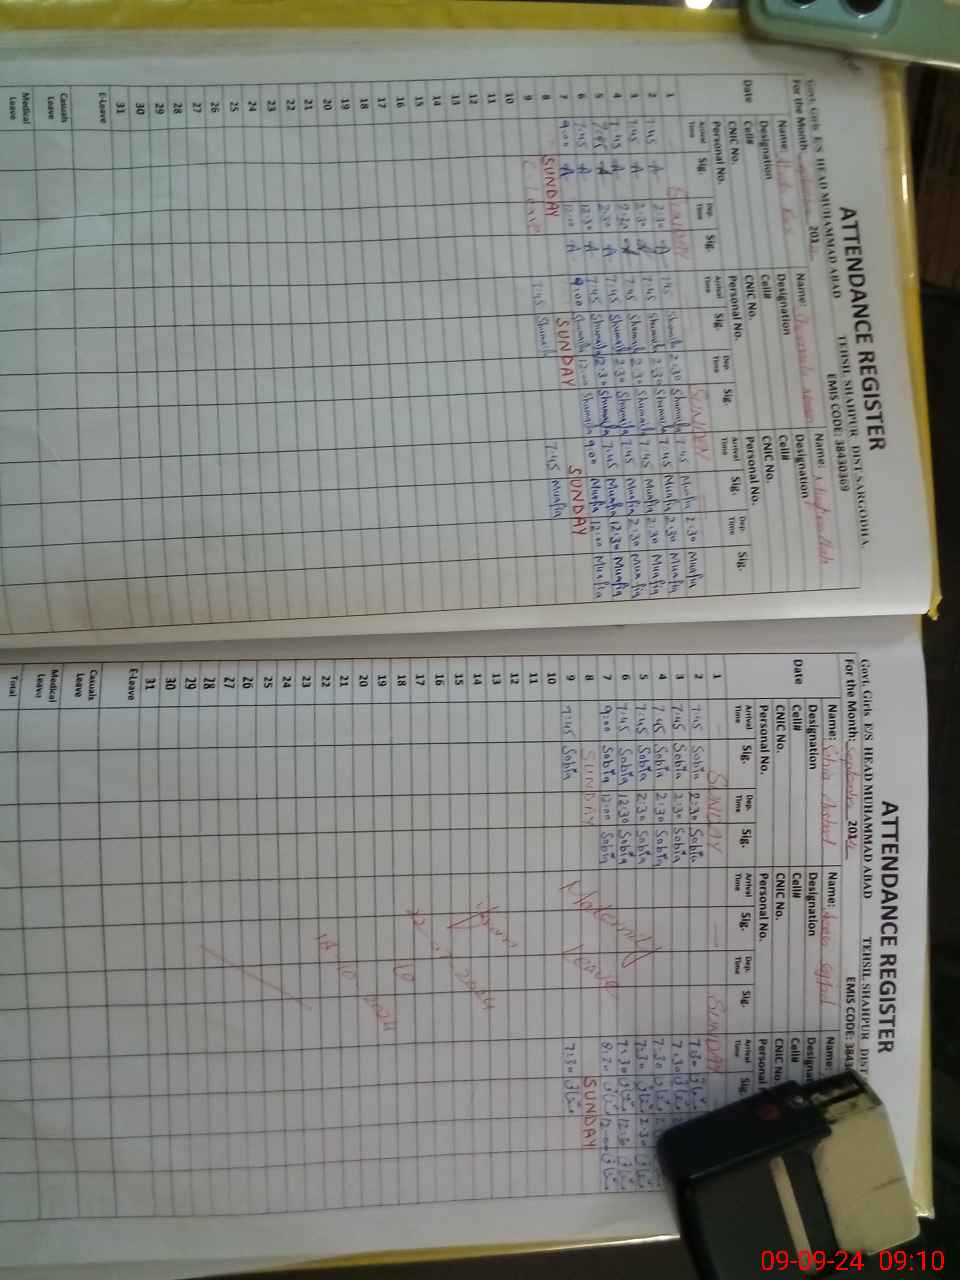 ATTENDANCE REGISTER
Govt. Girls E/S HEAD MUHAMMAD ABAD TEHSIL SHAHPUR DIST.SARGODHA.
For the Month: 202 EMIS CODE: 38430369
Name: Name: Name:
Designation Designation Designation
Cell# Cell# Cell#
CNIC No. CNIC No. CNIC No.
Personal No. Personal No. Personal No.
Date Arrival Time Sig. Dep. Time Sig. Arrival Time Sig. Dep. Time Sig. Arrival Time Sig. Dep. Time Sig.
1 SUNDAY
2 7:45 A 2:30 A 7:45 Shumaila 2:30 Shumaila 7:45 Muafia 2:30 Muafia
3 7:45 A 2:30 A 7:45 Shumaila 2:30 Shumaila 7:45 Muafia 2:30 Muafia
4 7:45 A 2:30 A 7:45 Shumaila 2:30 Shumaila 7:45 Muafia 2:30 Muafia
5 7:45 A 2:30 A 7:45 Shumaila 2:30 Shumaila 7:45 Muafia 2:30 Muafia
6 7:45 A 12:30 A 7:45 Shumaila 7:45 Muafia 12:30 Muafia
7 9:00 A 12:00 A 9:00 Shumaila 12:00 Shumaila 9:00 Muafia 12:00 Muafia
8 SUNDAY SUNDAY SUNDAY
9 C-Leave 7:45 Shumaila 7:45 Muafia
10
11
12
13
14
15
16
17
18
19
20
21
22
23
24
25
26
27
28
29
30
31
E-Leave
Casuals Leave
Medical Leave
ATTENDANCE REGISTER
Govt. Girls E/S HEAD MUHAMMAD ABAD TEHSIL SHAHPUR DIST
For the Month: September 202 EMIS CODE: 3843
Name: Sobia Name: Name:
Designation Designation
Cell# Cell# Cell#
CNIC No. CNIC No. CNIC No
Personal No. Personal No. Personal
Date Arrival Time Sig. Dep. Time Sig. Arrival Time Sig. Dep. Time Sig. Arrival Time Sig.
1 SUNDAY SUNDAY
2 7:45 Sobia 2:30 Sobia 7:30
3 7:45 Sobia 2:30 Sobia 7:30
4 7:45 Sobia 2:30 Sobia 7:30
5 7:45 Sobia 2:30 Sobia 7:30 2:30
6 7:45 Sobia 12:30 Sobia 7:30 12:30
7 9:00 Sobia 12:00 Sobia 8:30 12:00
8 SUNDAY SUNDAY
9 7:45 Sobia 7:30
Maternity Leave
From
2024
to
2024
10
11
12
13
14
15
16
17
18
19
20
21
22
23
24
25
26
27
28
29
30
31
E-Leave
Casuals Leave
Medical Leave
Total
09-09-24 09:10